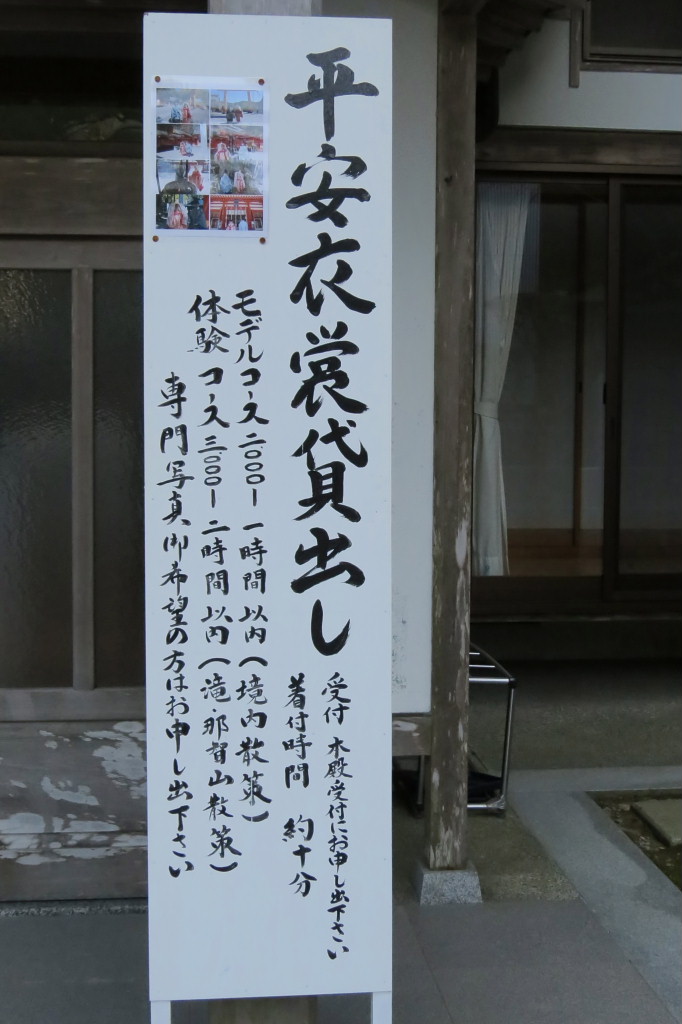 平安衣裳貸出し
受付 本殿受付にお申し出下さい
着付時間 約十分
モデルコース 二.〇〇〇ー 一時間以内(境内散策)
体験コース 三.〇〇〇ー 二時間以内(滝、那智山散策)
専門写真御希望の方はお申し出下さい